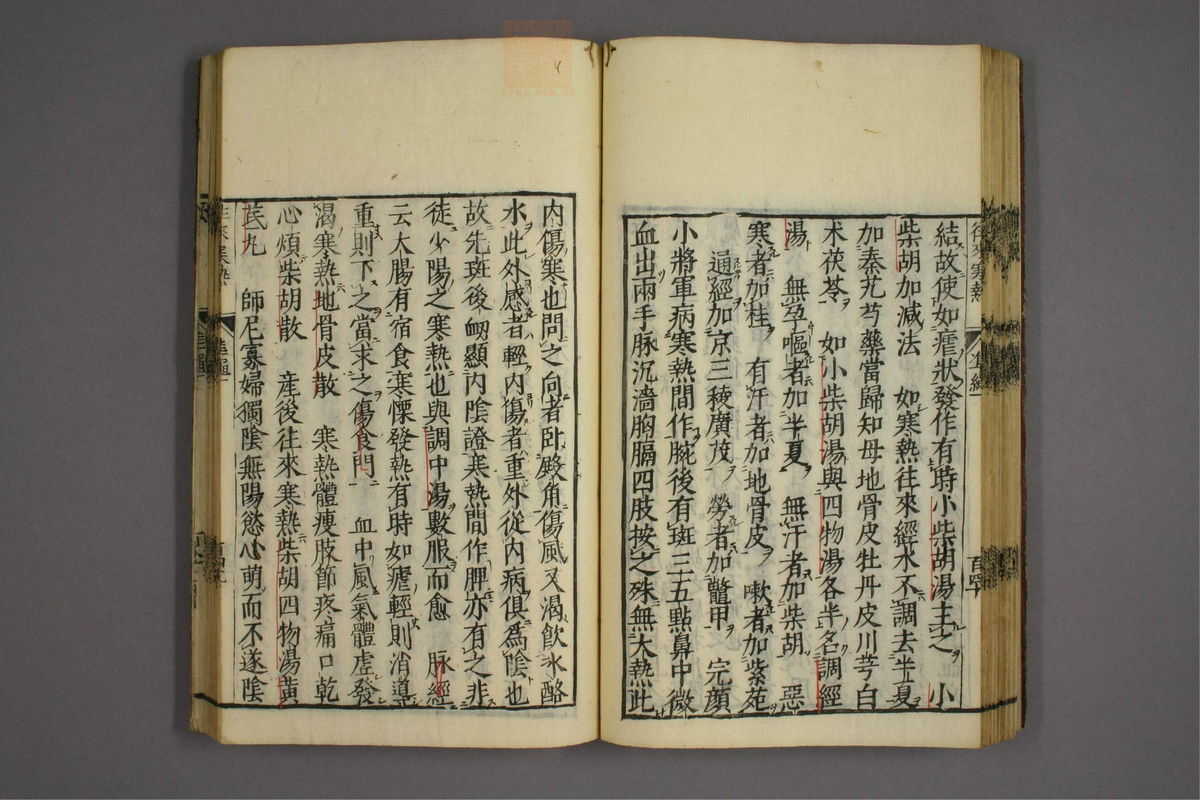 結故使如瘧狀發作有時小柴胡湯主之　小
柴胡加減法　如寒熱往來經水不調去半夏
加秦艽芍藥當歸知母地骨皮牡丹皮川芎白
术茯苓　如小柴胡湯與四物湯各半名調經
湯　無孕嘔者加半夏　無汗者加柴胡　惡
寒者加桂　有汗者加地骨皮　嗽者加紫菀
通經加京三稜廣茂　勞者加鼈甲　完顏
小將軍病寒熱間作腕後有斑三五點鼻中微
血出兩手脉沉濇胸膈四肢按之殊無大熱此
內傷寒也問之向者卧殿角傷風又渴飲冰酪
水此外感者輕內傷者重外從內病俱爲陰也
故先斑後衂顯內陰證寒熱間作脾亦有之非
徒少陽之寒熱也與調中湯數服而愈　脉經
云大腸有宿食寒慄發熱有時如瘧輕則消導
重則下之當求之傷食門　血中風氣體虛發
渴寒熱地骨皮散　寒熱體瘦肢節疼痛口乾
心煩柴胡散　產後往來寒熱柴胡四物湯黃
芪丸　師尼寡婦獨陰無陽慾心萌而不遂陰